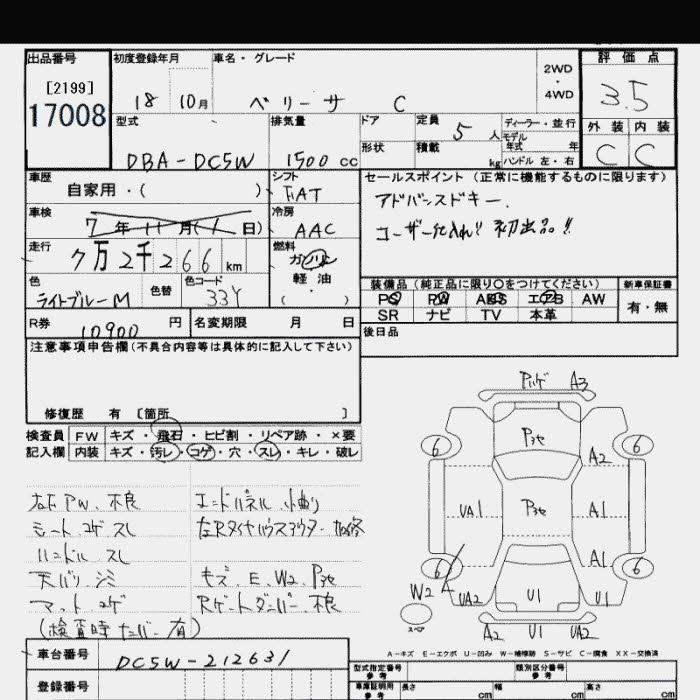 出品番号
[2199]
17008
初度登録年月
18 10月
車名・グレード
ベリーサ C
2WD
・
4WD
評価点
3.5
外装 内装
C C
型式
DBA-DC5W
排気量
1500 cc
ドア
形状
定員
5 人
積載
kg
ディーラー・並行
モデル
年式 年
ハンドル 左・右
車歴
自家用・( )
シフト
FAT
車検
7年11月(1日)
冷房
AAC
走行
7万2千266 km
燃料
ガソリン
軽油
( ・ )
色
ライトブルーM
色替
色コード
33Y
R券
10900 円
名変期限 月 日
セールスポイント(正常に機能するものに限ります)
アドバンスドキー.
ユーザー仕入れ!! 初出品!!
装備品(純正品に限り○をつけてください)
PS PW ABS エアB AW
SR ナビ TV 本革
新車保証書
有・無
後日品
注意事項申告欄(不具合内容等は具体的に記入して下さい)
修復歴 有 〔箇所 〕
検査員
記入欄
FW キズ・飛石・ヒビ割・リペア跡・×要
内装 キズ・汚レ・コゲ・穴・スレ・キレ・破レ
右F PW. 不良
シート コゲ スレ
ハンドル スレ
天バリ シミ
マット コゲ
(検査時ナンバー有)
エンドパネル 小曲り
左Rタイヤハウスアウター
キズ. E. W2. P3セ
Rゲートダンパー 不良
A3
P3セ
6
6
A2
UA1
P3セ
A1
A1
6
6
W2
A
UA2
U1
U1
スペア
A2
U1
UA2
A-キズ E-エクボ U-凹み W-補修跡 S-サビ C-腐食 XX-交換済
車台番号
DC5W-212631
登録番号
型式指定番号
参考
類別区分番号
参考
車庫証明用
参考
長さ cm
幅 cm
高さ cm